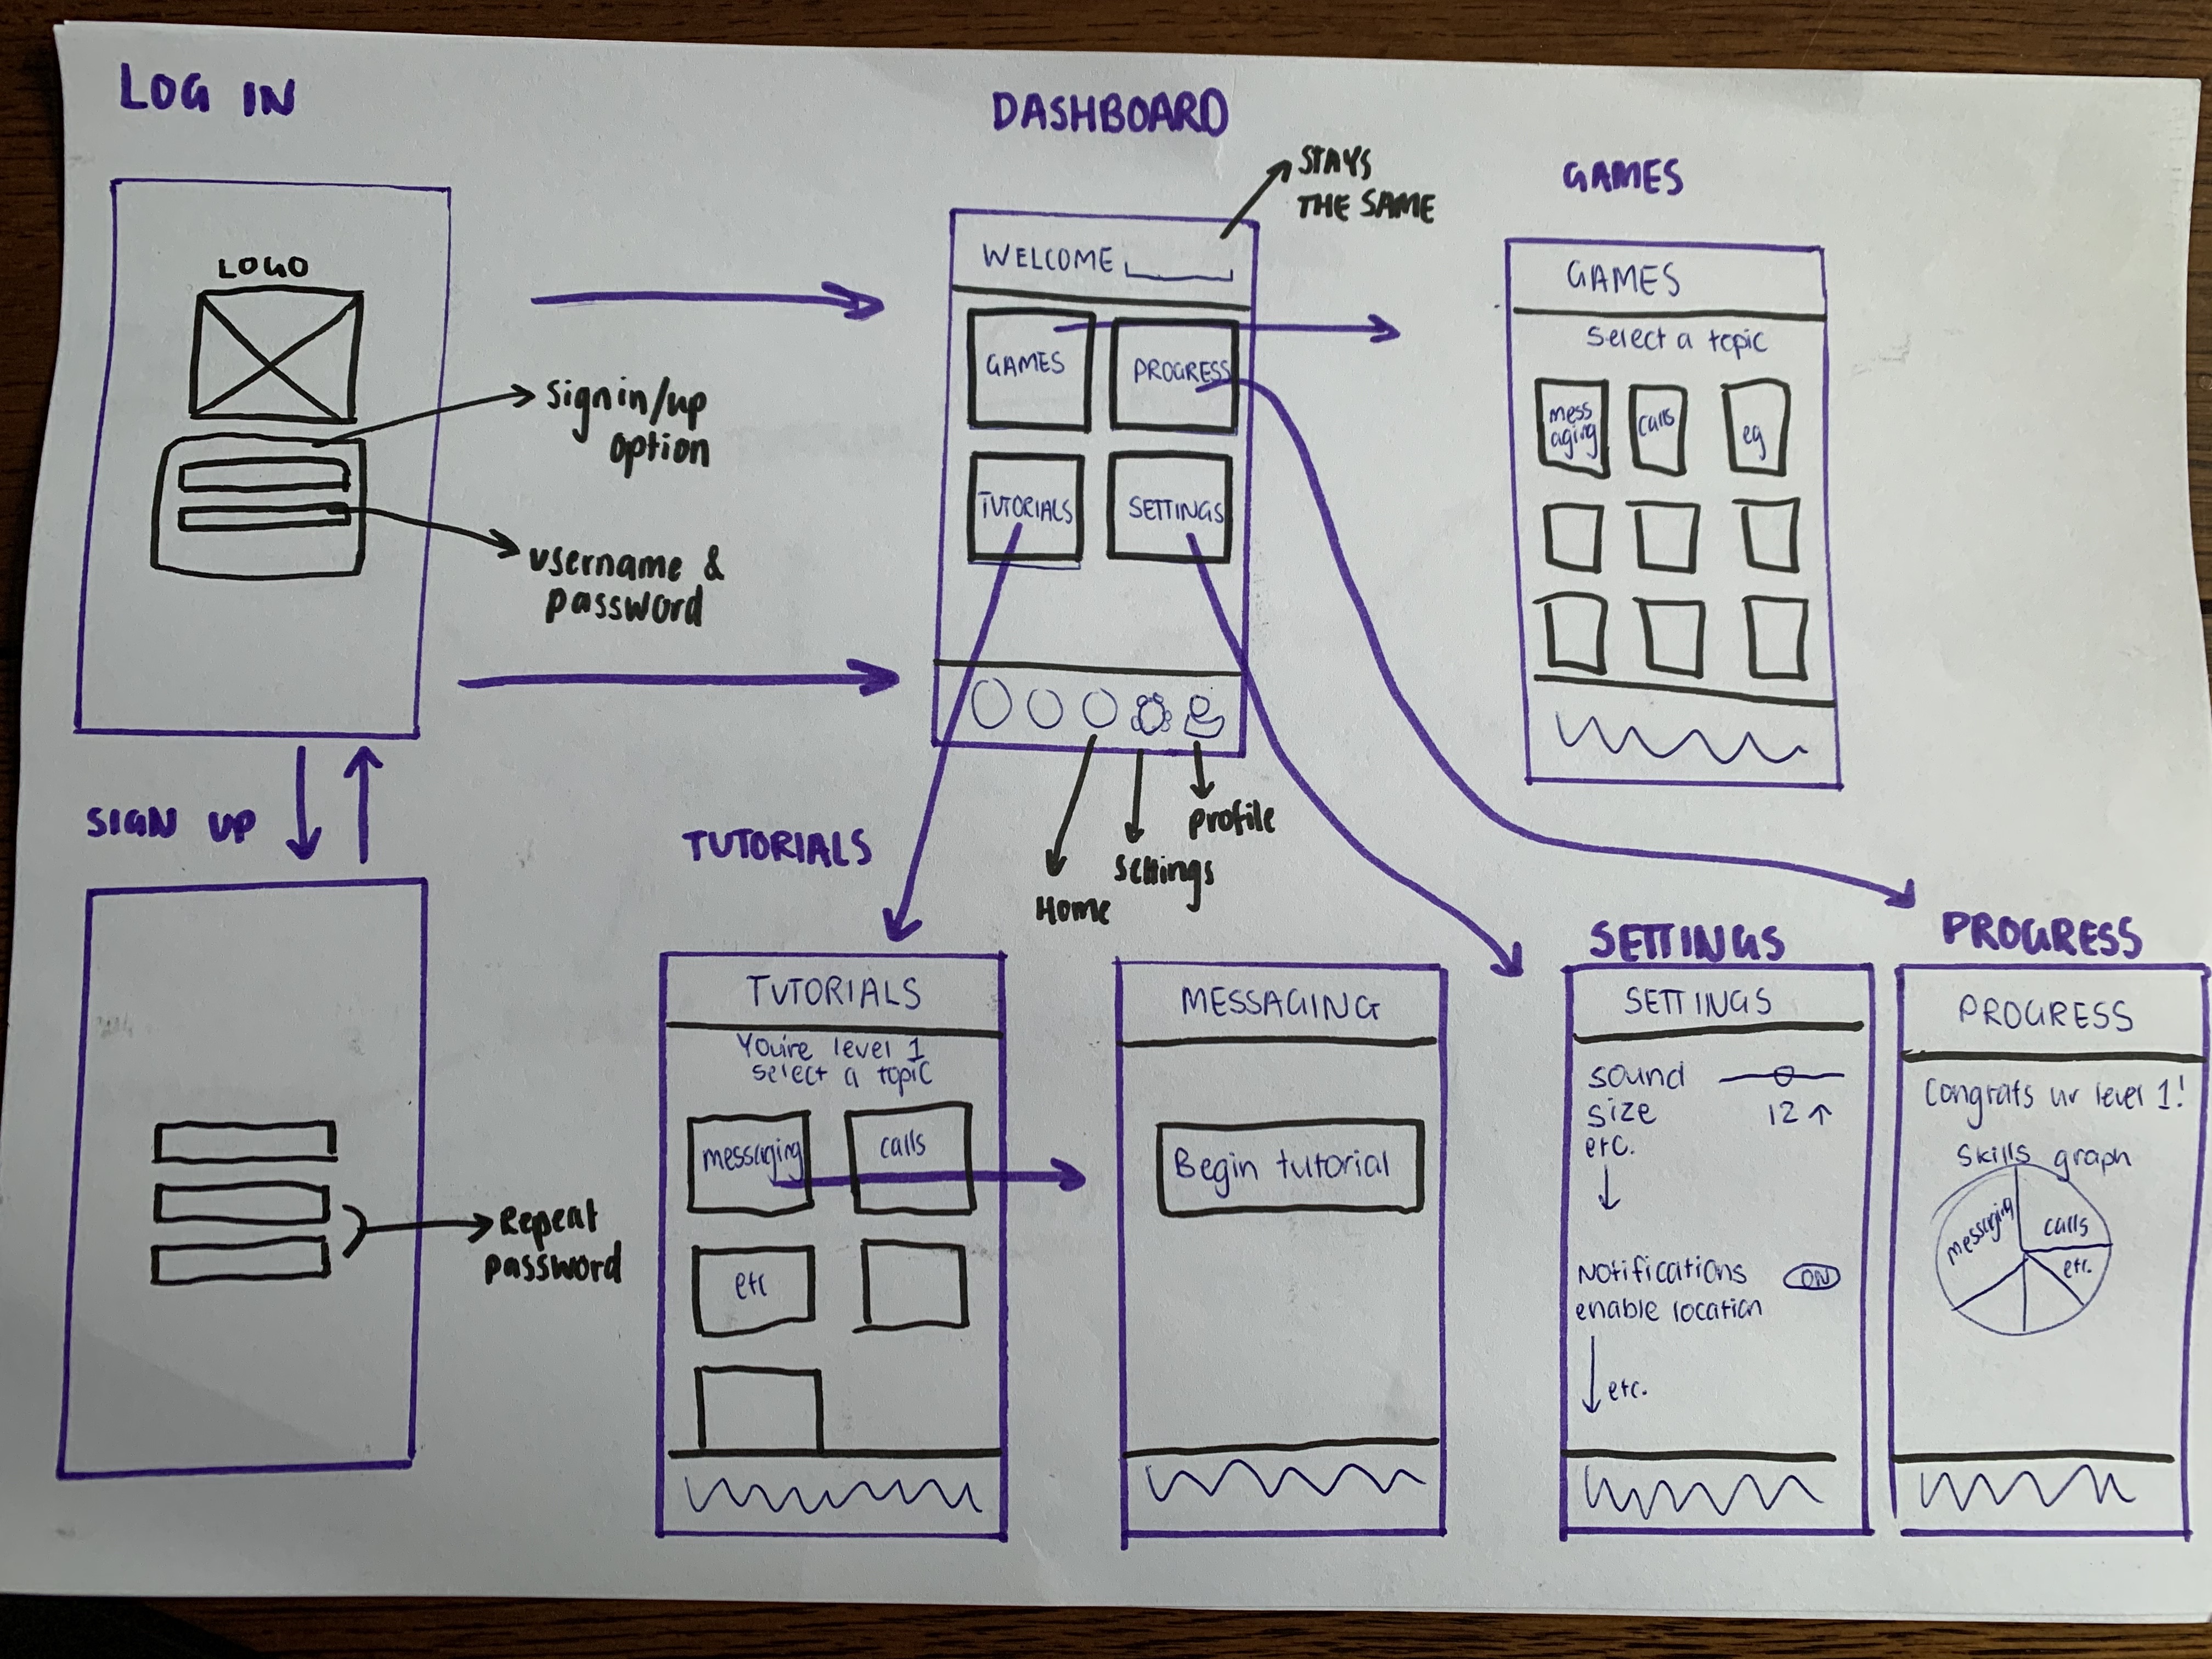 LOG IN
LOGO
Sign in/up
option
username &
password
SIGN UP
Repeat
password
DASHBOARD
STAYS
THE SAME
WELCOME
GAMES
PROGRESS
TUTORIALS
SETTINGS
Profile
Settings
Home
GAMES
GAMES
Select a topic
mess
aging
calls
eg
TUTORIALS
TUTORIALS
You're level 1
select a topic
messaging
calls
etc
MESSAGING
Begin tutorial
SETTINGS
SETTINGS
sound
size 12
etc.
Notifications ON
enable location
etc.
PROGRESS
PROGRESS
Congrats ur level 1!
Skills graph
messaging
calls
etc.